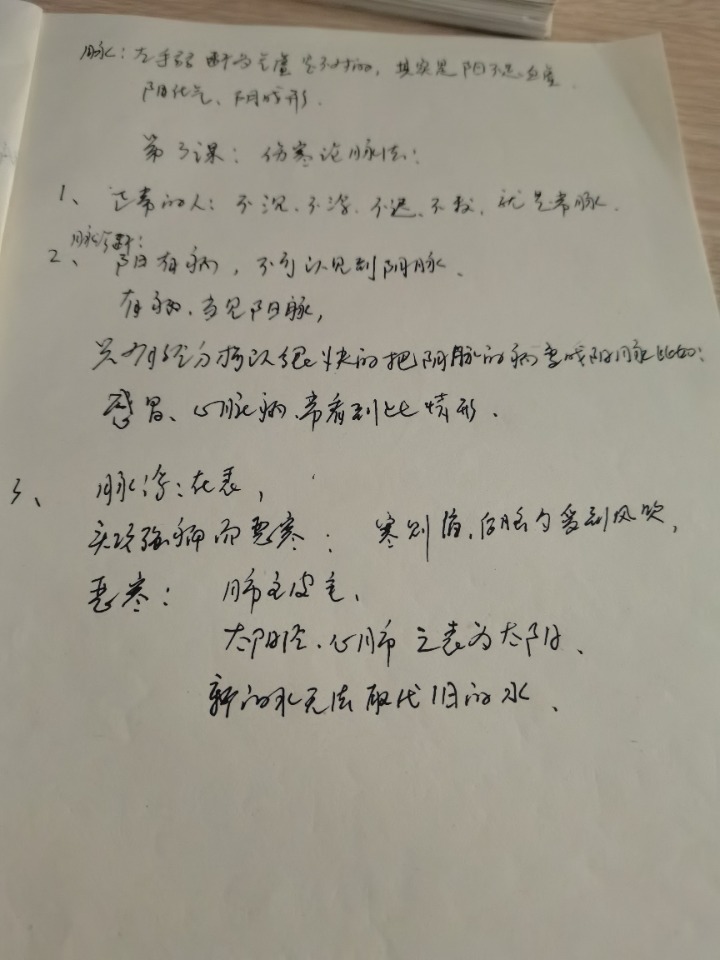 脉：左手弱 断为气虚是不对的，其实是阳不足血虚
阳化气、阴成形．
第3课：伤寒论脉法：
1、正常的人：不沉、不浮、不迟、不数，就是常脉．
脉诊断：
2、阳有病，不可以见到阴脉、
有病、当见阳脉，
只有经方可以很快的把阴脉的病变成阳脉比如：
感冒、心脏病、常看到此情形．
3、脉浮：在表，
头项强痛而恶寒：寒则伤，后脑勺受到风吹，
恶寒：肺主皮毛、
太阳经、心肺之表为太阳、
新的水无法取代旧的水、